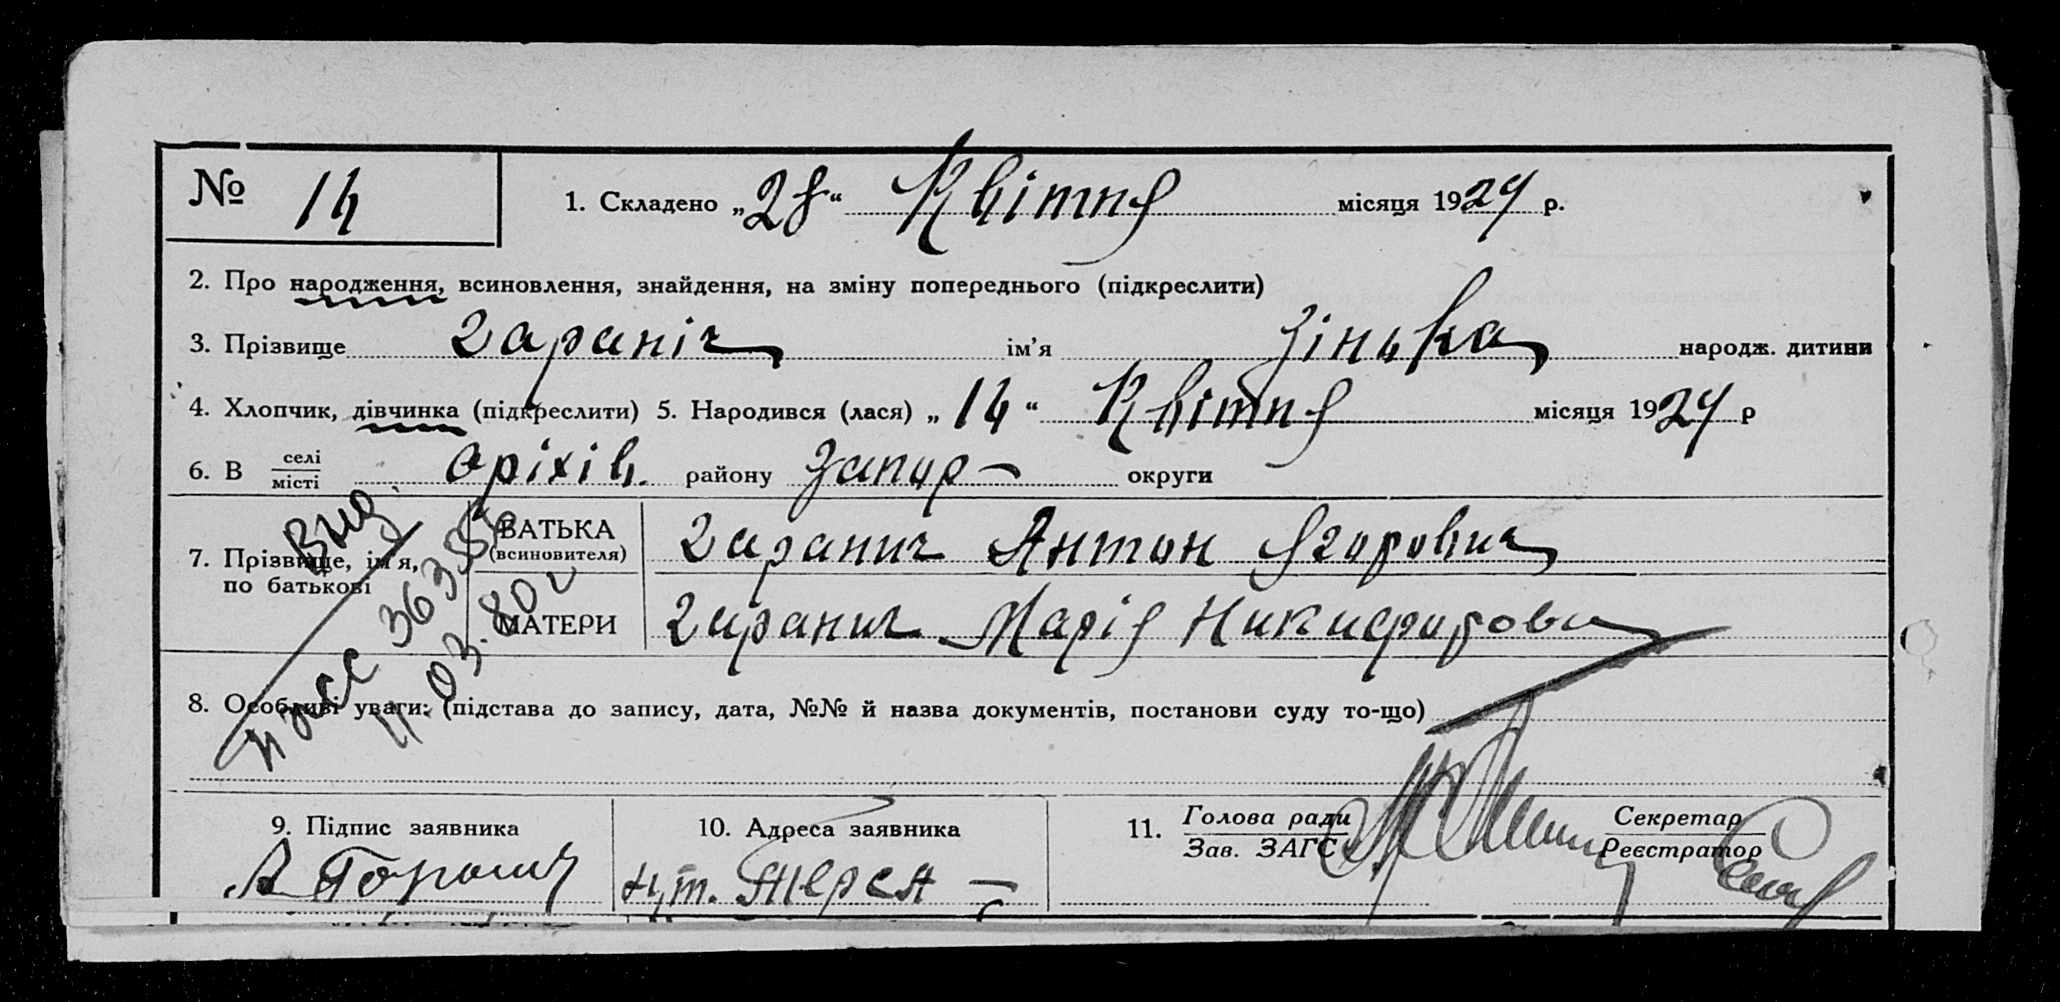 № 14
1. Складено „28“ Квітня місяця 1924 р.
2. Про народження, всиновлення, знайдення, на зміну попереднього (підкреслити)
3. Прізвище Гараніч ім'я Зінька народж. дитини
4. Хлопчик, дівчинка (підкреслити) 5. Народився (лася) „14“ Квітня місяця 1924 р
6. В селі місті Оріхів. району Запор– округи
7. Прізвище, ім'я, по батькові
БАТЬКА (всиновителя) Гаранич Антон Ягорович
МАТЕРИ Гаранич Марія Никифорова
Выд.
11.03.80г
8. Особливі уваги: (підстава до запису, дата, №№ й назва документів, постанови суду то-що)
9. Підпис заявника
10. Адреса заявника
11. Голова ради Зав. ЗАГС
Секретар Реєстратор
А Горанич